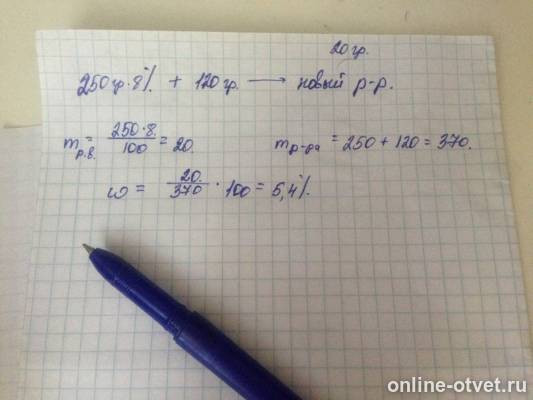 20 гр.
250 гр. 8% + 120 гр. → новый р-р.
m р.в. = 250·8 / 100 = 20. m р-ра = 250 + 120 = 370.
ω = 20 / 370 · 100 = 5,4%.
online-otvet.ru